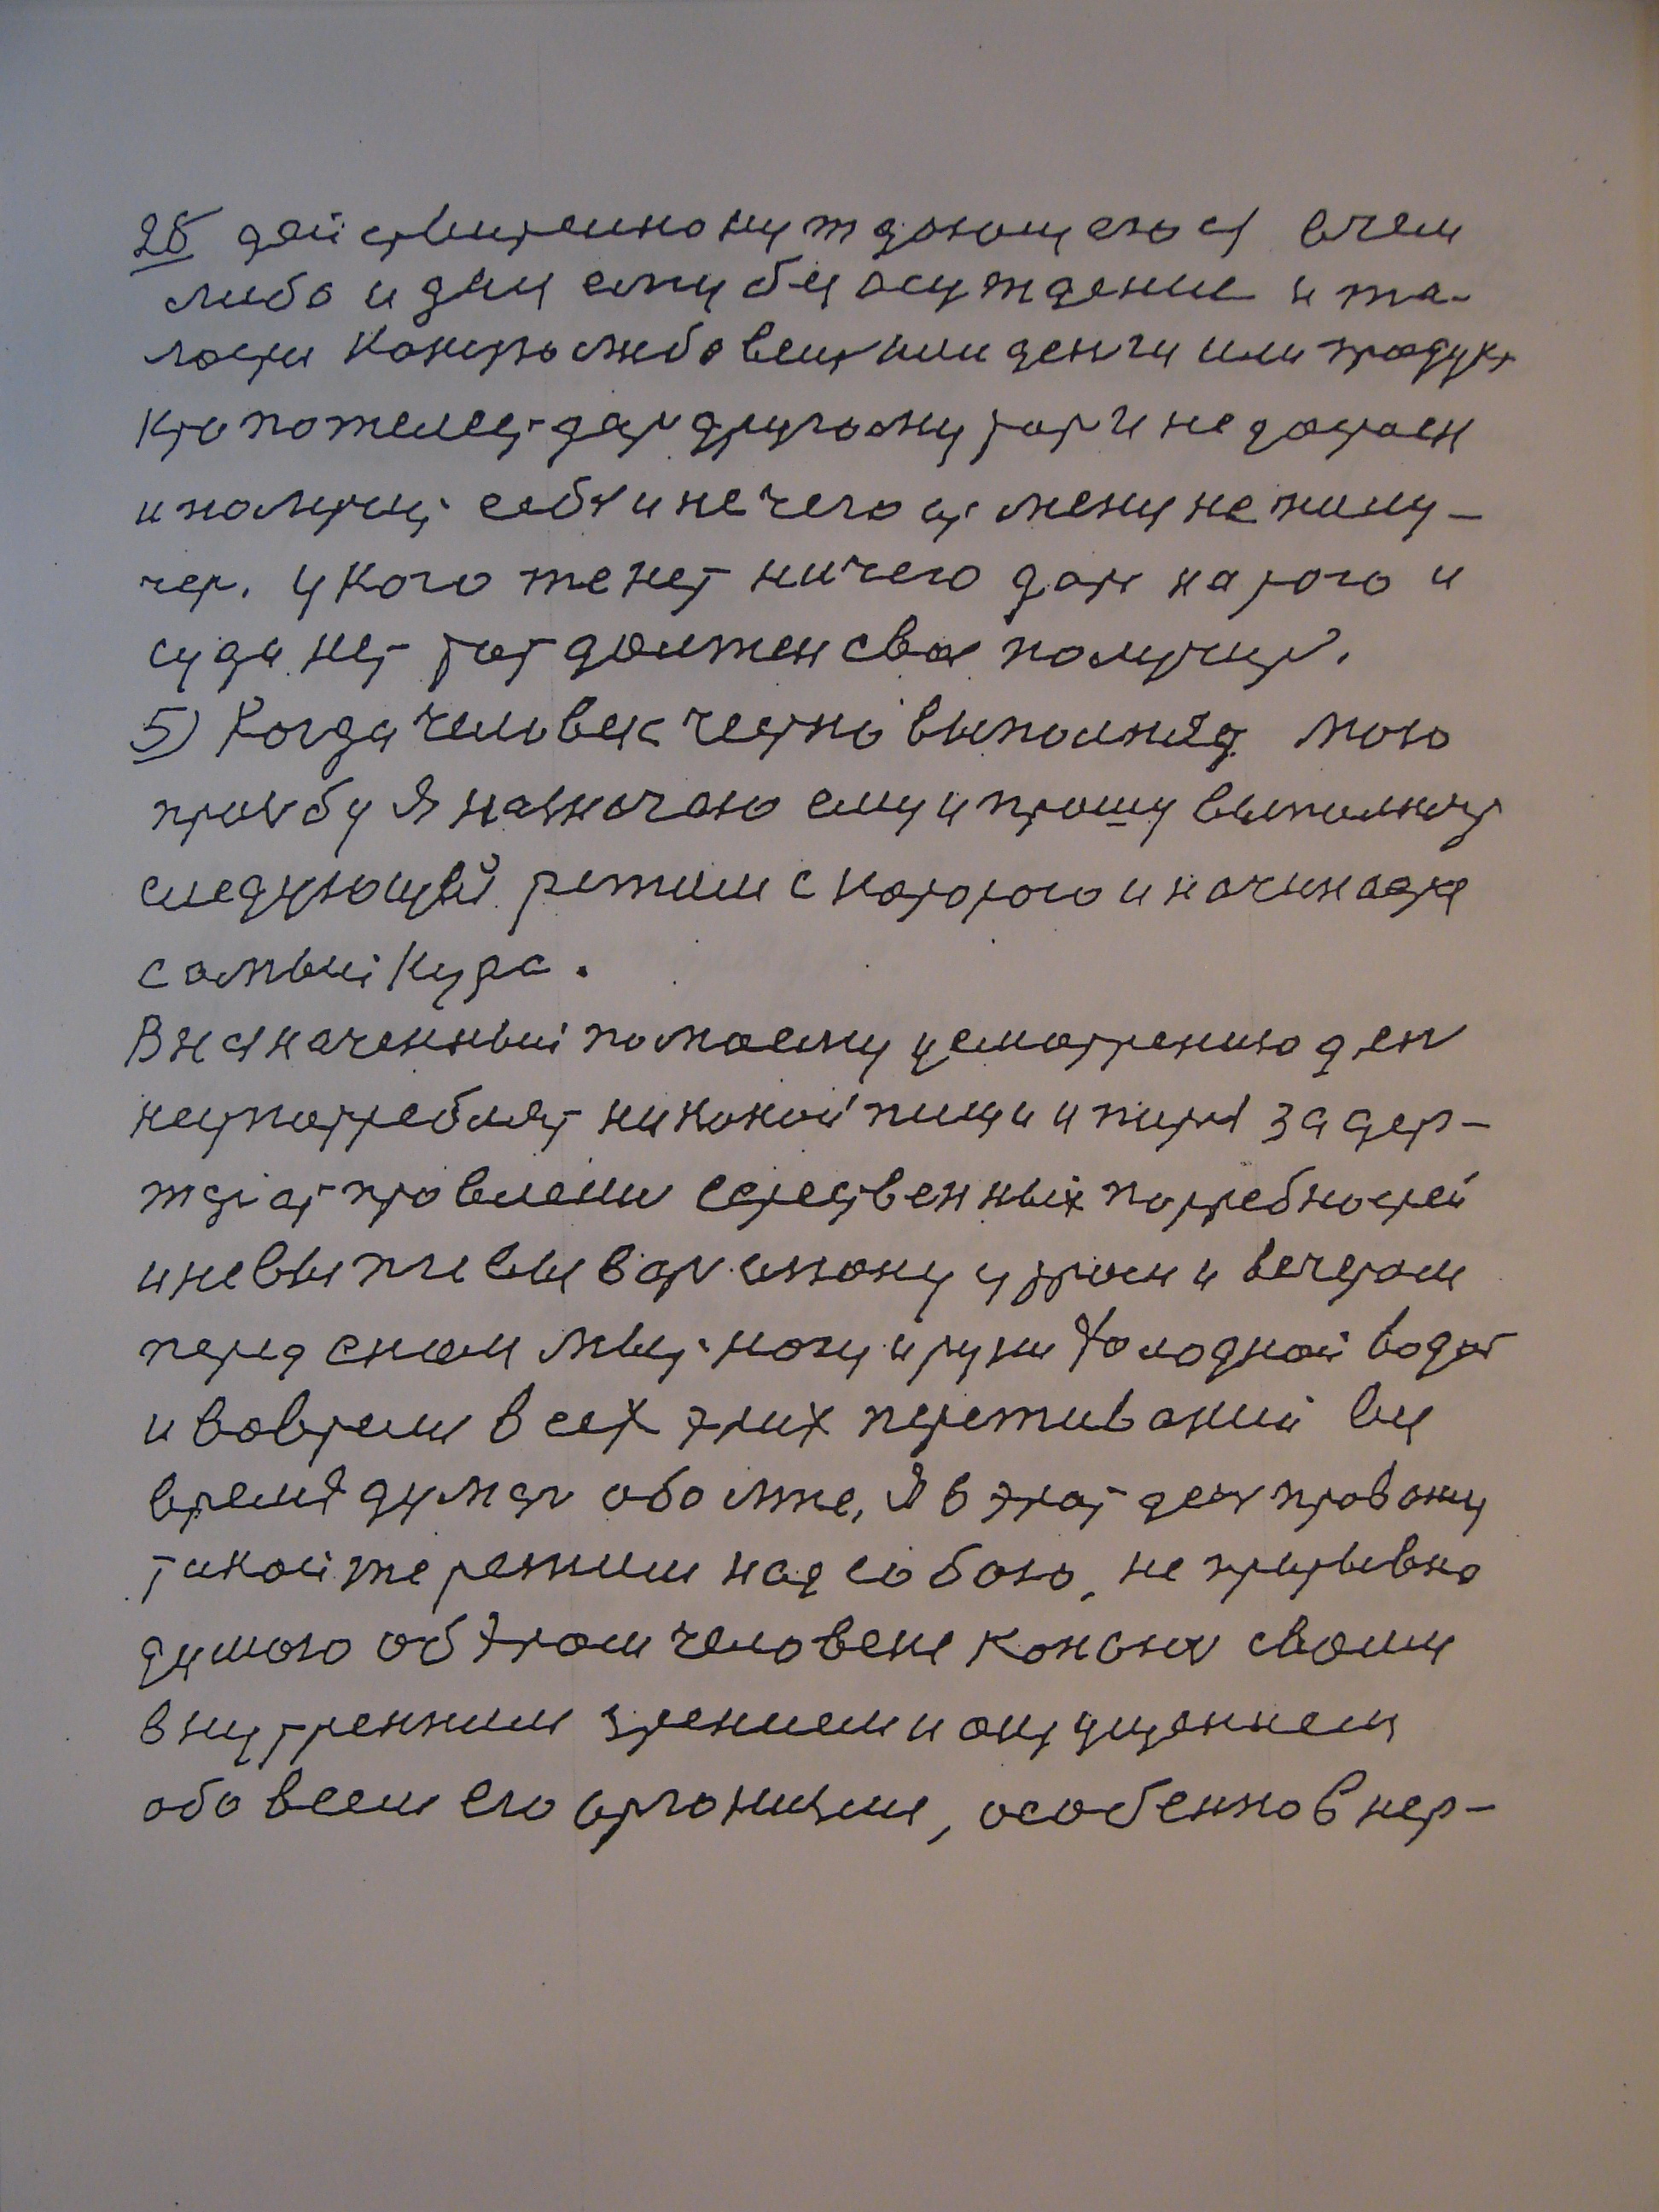 28 действителнно нуждающегося вчем
либо и дай ему без осуждение и жа-
лости какуюлибо вещ или денги или продукт
кто пожелает дат другому тот и не должен
и получит себе и нечего ст мену не получ-
чет. у кого же нет ничего дат на того и
суда нет тот должен свое получит.
5) Когда человек честно выполнид мою
прозбу Я назначаю ему и прошу выполнят
следующий режим с которого и начинается
самый курс.
В назначенный помоему усмотрению ден
неупотреблят никокой пищи и питя задер-
жат отправлени естественных потребностей
и невыплевыват слюну утром и вечером
перед сном мыт ногы и руки холодной водой
и вовремя всех этих переживаний вы
время думат обо мне, Я в этот ден провожу
такой же режим над собою, непрерывно
думаю об этом человеке каксаюс своим
внутренним зрением и ощущением
обо всем его организме, особенно в нер-